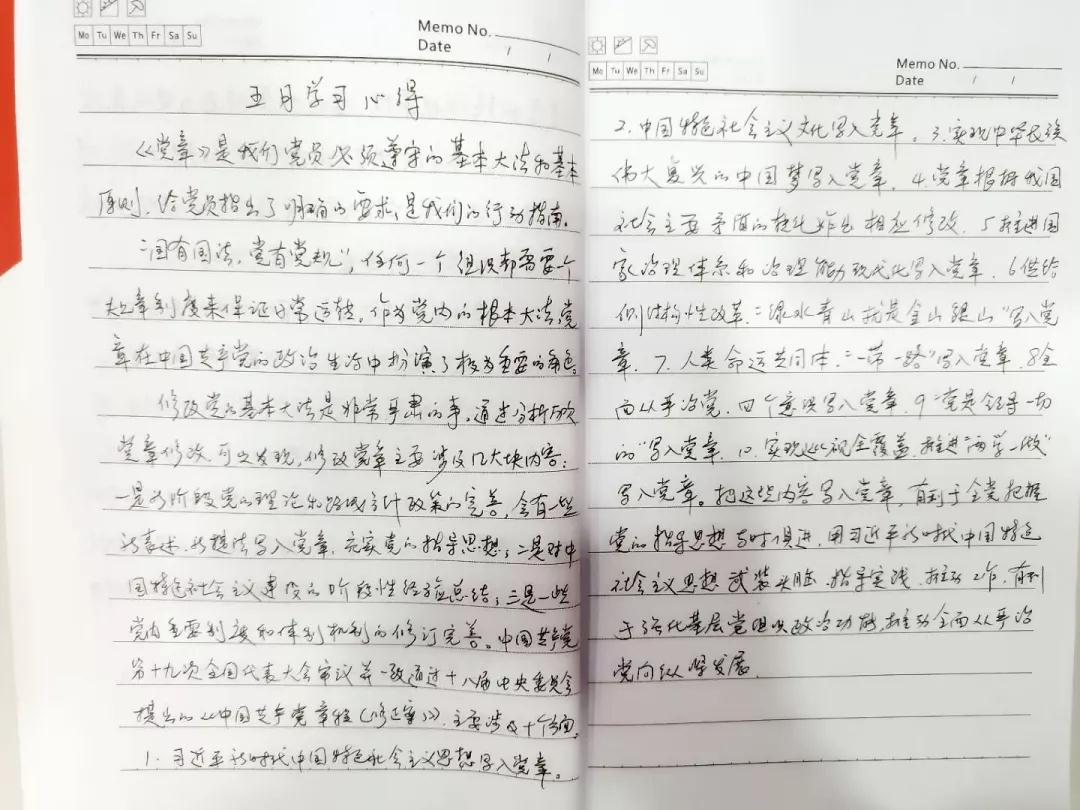 Mo Tu We Th Fr Sa Su
Memo No.
Date / /
五月学习心得
《党章》是我们党员必须遵守的基本大法和基本
原则,给党员指出了明确的要求,是我们的行动指南。
“国有国法,党有党规”,任何一个组织都需要个
规章制度来保证日常运转。作为党内的根本大法,党
章在中国共产党的政治生活中扮演了极为重要的角色。
修改党的基本大法是非常严肃的事。通过分析历次
党章修改可以发现,修改党章主要涉及几大块内容:
一是各阶段党的理论和路线方针政策的完善,会有一些
新表述、新想法写入党章,充实党的指导思想;二是对中
国特色社会主义建设的阶段性经验总结;三是一些
党内重要制度和体制机制的修订完善。中国共产党
第十九次全国代表大会审议并一致通过十八届中央委员会
提出的《中国共产党章程(修正案)》,主要涉及十个方面。
1. 习近平新时代中国特色社会主义思想写入党章。
Mo Tu We Th Fr Sa Su
Memo No.
Date / /
2. 中国特色社会主义文化写入党章。3. 实现中华民族
伟大复兴的中国梦写入党章。4. 党章根据我国
社会主要矛盾的转化作出相应修改。5 推进国
家治理体系和治理能力现代化写入党章。6 供给
侧结构性改革、“绿水青山就是金山银山”写入党
章。7. 人类命运共同体、“一带一路”写入党章。8 全
面从严治党、四个意识写入党章。9 “党是领导一切
的”写入党章。10. 实现巡视全覆盖、推进“两学一做”
写入党章。把这些内容写入党章,有利于全党把握
党的指导思想与时俱进,用习近平新时代中国特色
社会主义思想武装头脑、指导实践、推动工作,有利
于强化基层党组织政治功能,推动全面从严治
党向纵深发展。